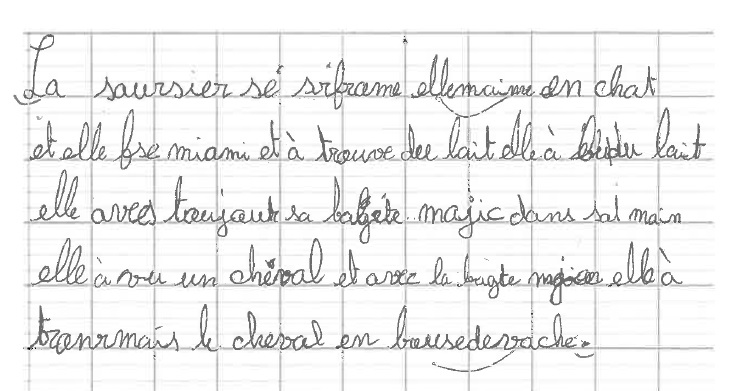 La saursier sé srframe ellemaime en chat
et elle fse miami et à trouve deu lait elle à budu lait
elle avres toujour sa bagete magic dans sal main
elle à vu un chéval et avec la bagte elle à
tranrmais le cheval en bousedevache.